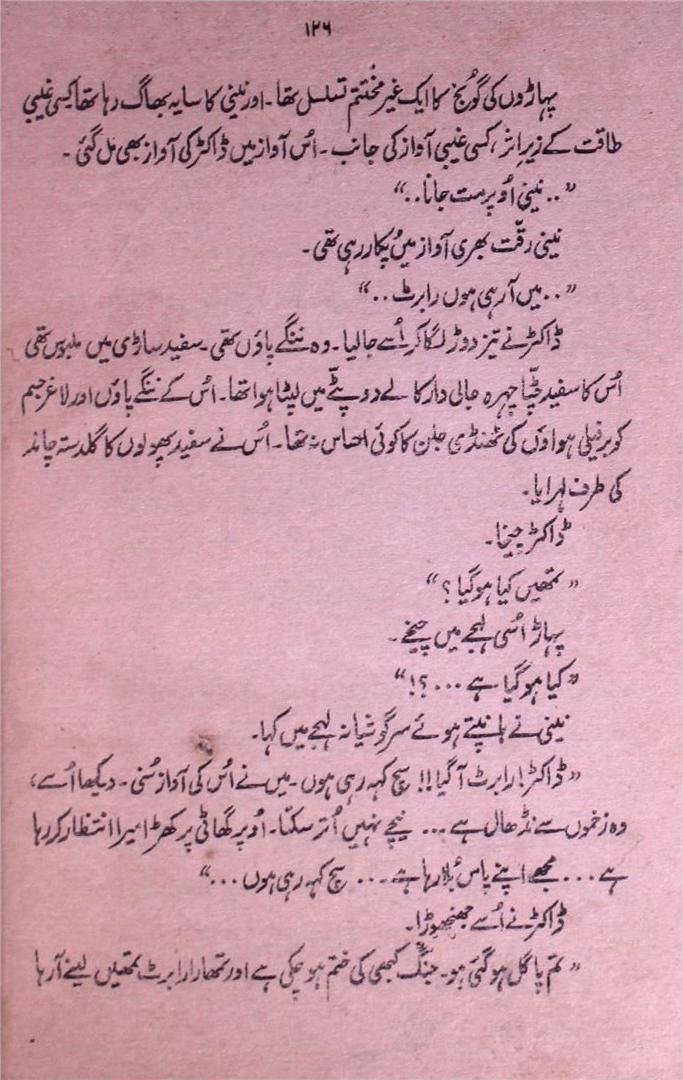 ۱۲۶
پہاڑوں کی گونج کا ایک غیر مختتم تسلسل تھا۔ اور نینی کا سایہ بھاگ رہا تھا کسی غیبی
طاقت کے زیرِ اثر، کسی غیبی آواز کی جانب۔ اُس آواز میں ڈاکٹر کی آواز بھی مل گئی۔
"۔۔ نینی اُوپر مت جانا۔۔"
نینی رقّت بھری آواز میں پکار رہی تھی۔
"۔۔ میں آ رہی ہوں رابرٹ۔۔"
ڈاکٹر نے تیز دوڑ لگا کر اُسے جا لیا۔ وہ ننگے پاؤں تھی۔ سفید ساڑی میں ملبوس تھی
اُس کا سفید چٹّا چہرہ جالی دار کالے دوپٹّے میں لپٹا ہوا تھا۔ اُس کے ننگے پاؤں اور لاغر جسم
کو برفیلی ہواؤں کی ٹھنڈی جلن کا کوئی احساس نہ تھا۔ اُس نے سفید پھولوں کا گلدستہ چاند
کی طرف لہرایا۔
ڈاکٹر چیخا۔
"تمھیں کیا ہو گیا؟"
پہاڑ اُسی لہجے میں چیخے۔
"کیا ہو گیا ہے ۔۔۔؟!"
نینی نے ہانپتے ہوئے سرگوشیانہ لہجے میں کہا۔
"ڈاکٹر! رابرٹ آ گیا!! سچ کہہ رہی ہوں۔ میں نے اُس کی آواز سُنی۔ دیکھا اُسے،
وہ زخموں سے نڈھال ہے ۔۔۔ نیچے نہیں اُتر سکتا۔ اُوپر گھاٹی پر کھڑا میرا انتظار کر رہا
ہے ۔۔۔ مجھے اپنے پاس بُلا رہا ہے ۔۔۔ سچ کہہ رہی ہوں ۔۔۔"
ڈاکٹر نے اُسے جھنجھوڑا۔
"تم پاگل ہو گئی ہو۔ جنگ کبھی کی ختم ہو چکی ہے اور تمھارا رابرٹ تمھیں لینے آ رہا